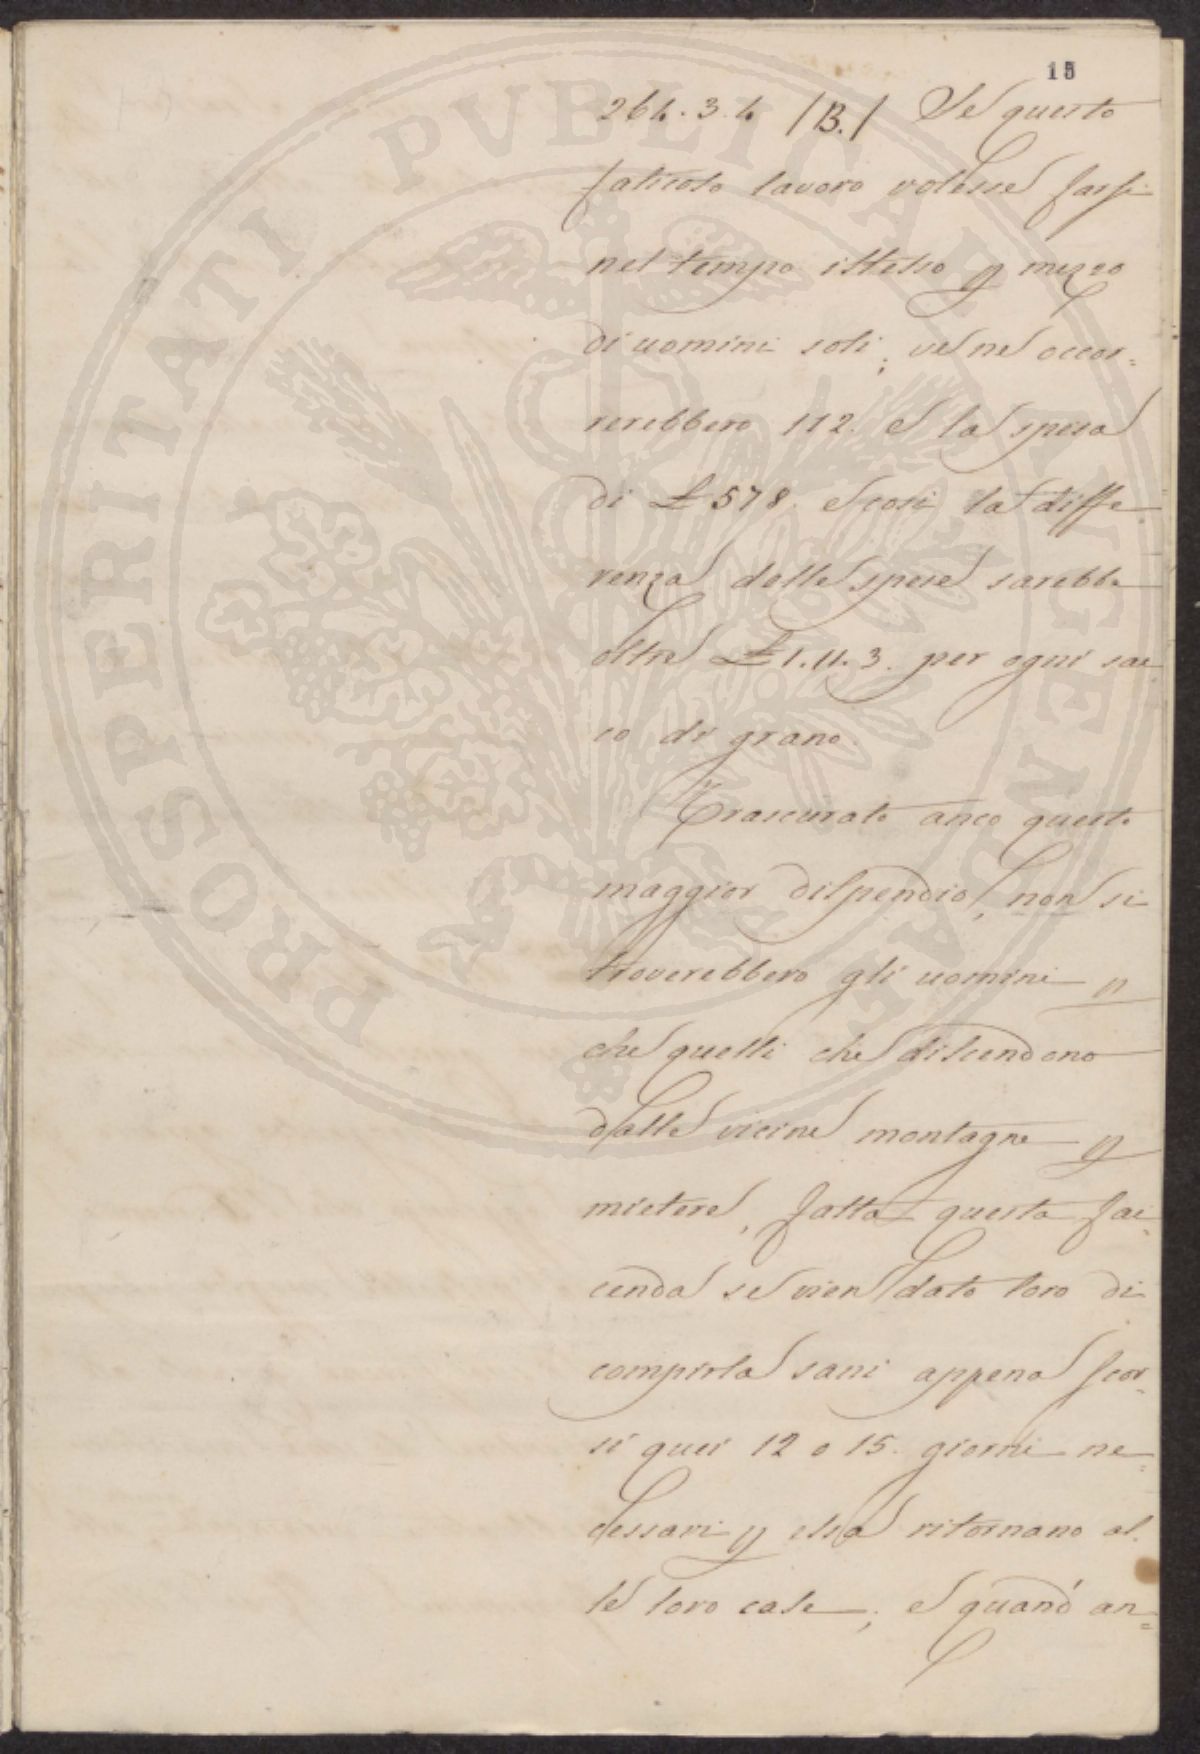 15
264. 3. 4 /B./ Se questo
faticoso lavoro volesse farsi
nel tempo istesso p mezzo
di uomini soli, ve ne occor=
rerebbero 112. e la spesa
di £ 578. e così la diffe
renza delle spese sarebbe
oltre £ 1. 11. 3. per ogni sac
co di grano.
Trascurato anco questo
maggior dispendio, non si
troverebbero gli uomini p
che quelli che discendono
dalle vicine montagne p
mietere, fatta questa fac
cenda se vien dato loro di
compirla sani appena scor=
si quei 12 o 15. giorni ne=
cessari p essa ritornano al
le loro case; e quand' an=
PROSPERITATI PUBLICAE AUGENDAE